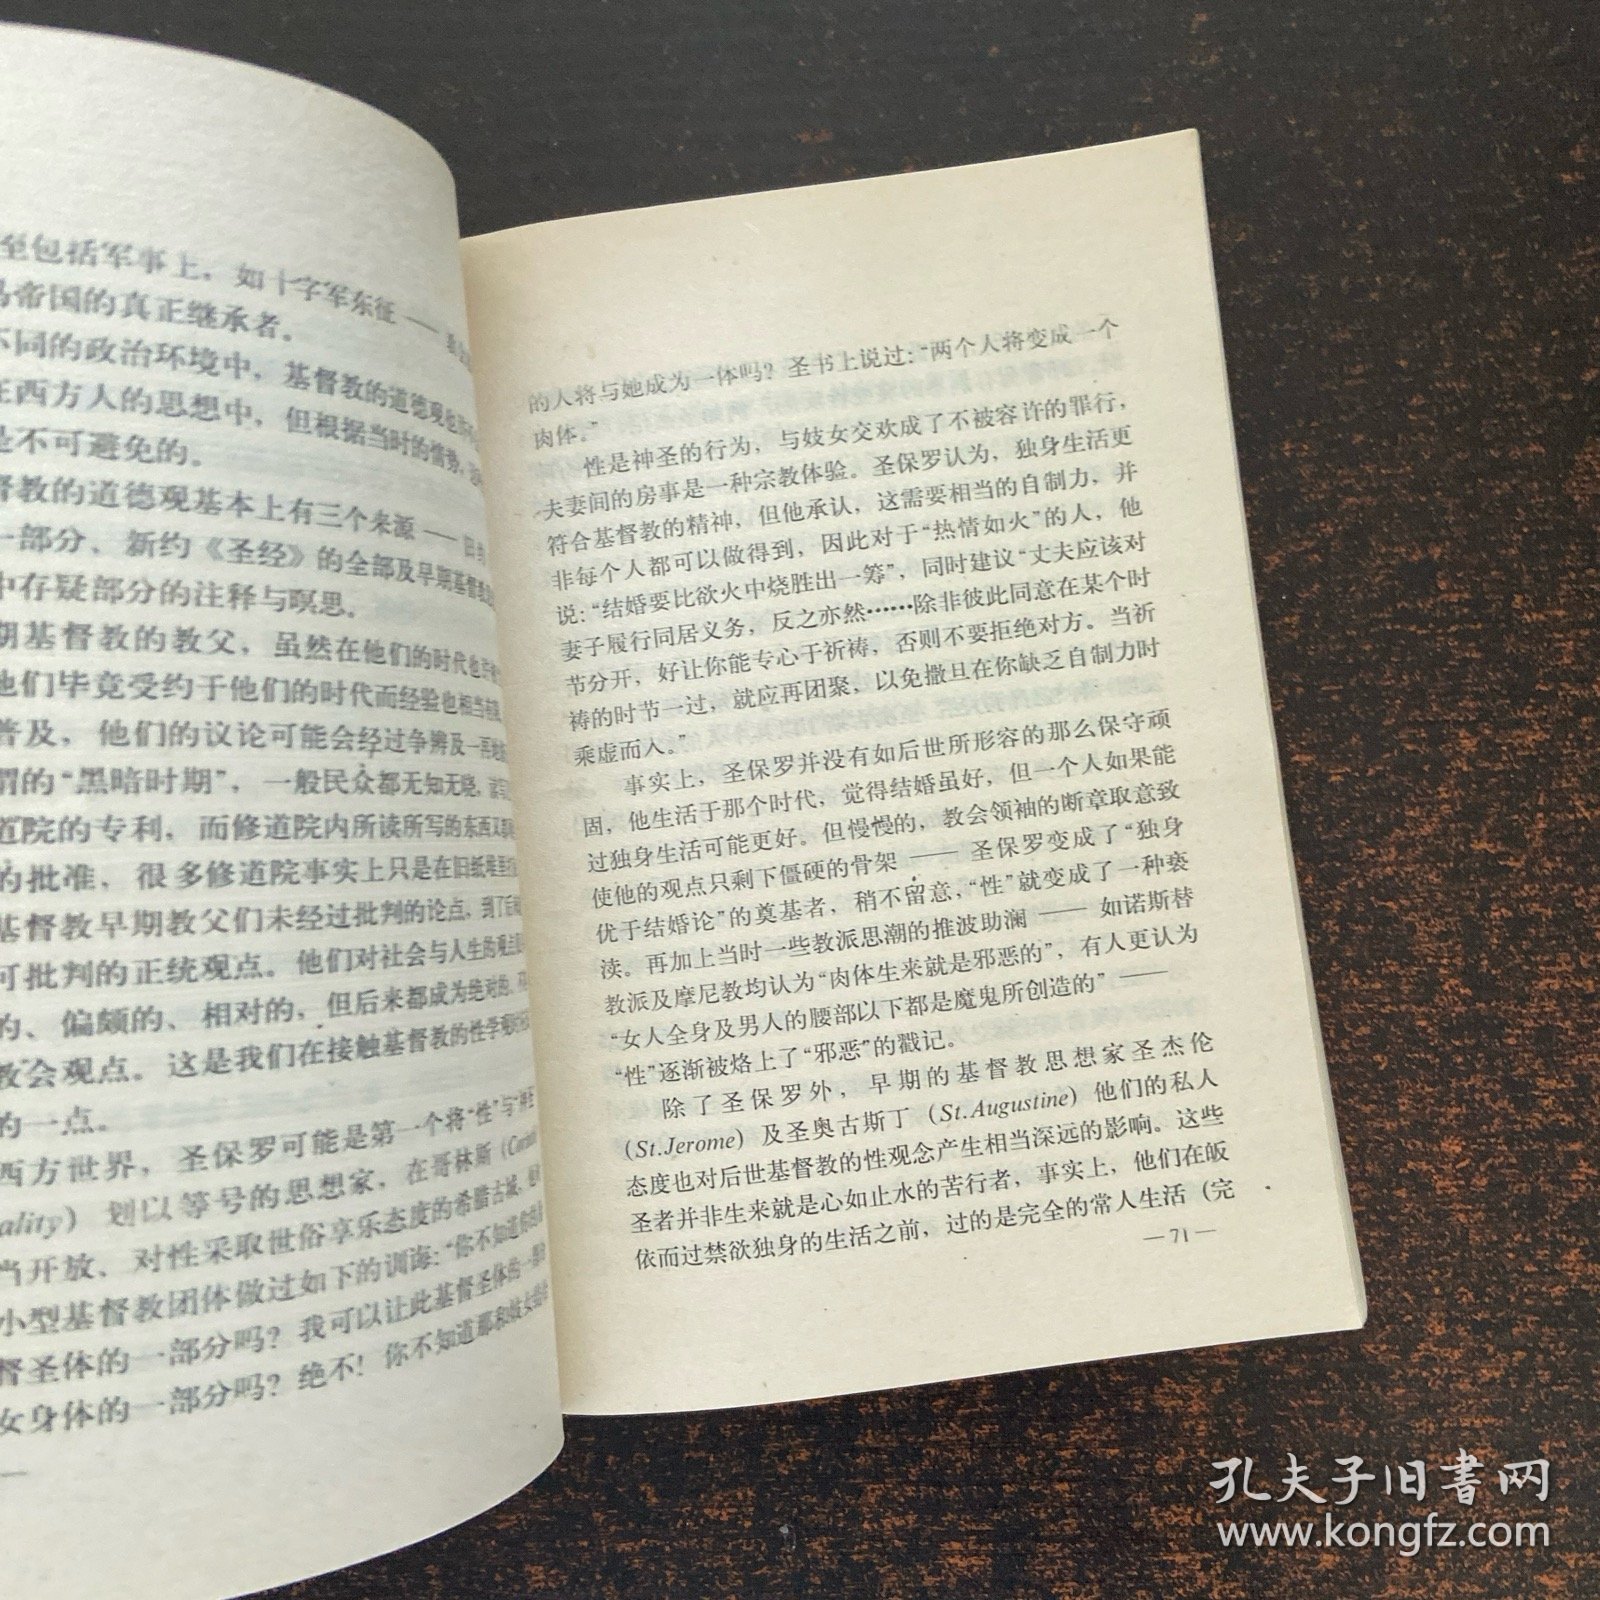 至包括军事上，如十字军东征——
帝国的真正继承者。
不同的政治环境中，基督教的道德观也
西方人的思想中，但根据当时的情势，
是不可避免的。
督教的道德观基本上有三个来源——旧
一部分、新约《圣经》的全部及早期基督教
中存疑部分的注释与冥思。
期基督教的教父，虽然在他们的时代也
他们毕竟受约于他们的时代而经验也相当
普及，他们的议论可能会经过争辨及一再
谓的“黑暗时期”，一般民众都无知无晓，
道院的专利，而修道院内所读所写的东西又
的批准，很多修道院事实上只是在旧纸堆里
基督教早期教父们未经过批判的论点，到了后
可批判的正统观点。他们对社会与人生的观点
的、偏颇的、相对的，但后来都成为绝对的、
教会观点。这是我们在接触基督教的性学
的一点。
西方世界，圣保罗可能是第一个将“性”与
ality）划以等号的思想家，在哥林斯
当开放、对性采取世俗享乐态度的希腊古城，
小型基督教团体做过如下的训诲：“你不知道
督圣体的一部分吗？我可以让此基督圣体的一
女身体的一部分吗？绝不！你不知道那和妓女
的人将与她成为一体吗？圣书上说过：“两个人将变成一个
肉体。”
性是神圣的行为，与妓女交欢成了不被容许的罪行，
夫妻间的房事是一种宗教体验。圣保罗认为，独身生活更
符合基督教的精神，但他承认，这需要相当的自制力，并
非每个人都可以做得到，因此对于“热情如火”的人，他
说：“结婚要比欲火中烧胜出一筹”，同时建议“丈夫应该对
妻子履行同居义务，反之亦然……除非彼此同意在某个时
节分开，好让你能专心于祈祷，否则不要拒绝对方。当祈
祷的时节一过，就应再团聚，以免撒旦在你缺乏自制力时
乘虚而入。”
事实上，圣保罗并没有如后世所形容的那么保守顽
固，他生活于那个时代，觉得结婚虽好，但一个人如果能
过独身生活可能更好。但慢慢的，教会领袖的断章取意致
使他的观点只剩下僵硬的骨架——圣保罗变成了“独身
优于结婚论”的奠基者，稍不留意，“性”就变成了一种亵
渎。再加上当时一些教派思潮的推波助澜——如诺斯替
教派及摩尼教均认为“肉体生来就是邪恶的”，有人更认为
“女人全身及男人的腰部以下都是魔鬼所创造的”——
“性”逐渐被烙上了“邪恶”的戳记。
除了圣保罗外，早期的基督教思想家圣杰伦
（St.Jerome）及圣奥古斯丁（St.Augustine）他们的私人
态度也对后世基督教的性观念产生相当深远的影响。这些
圣者并非生来就是心如止水的苦行者，事实上，他们在皈
依而过禁欲独身的生活之前，过的是完全的常人生活（完
—71—
孔夫子旧书网
www.kongfz.com